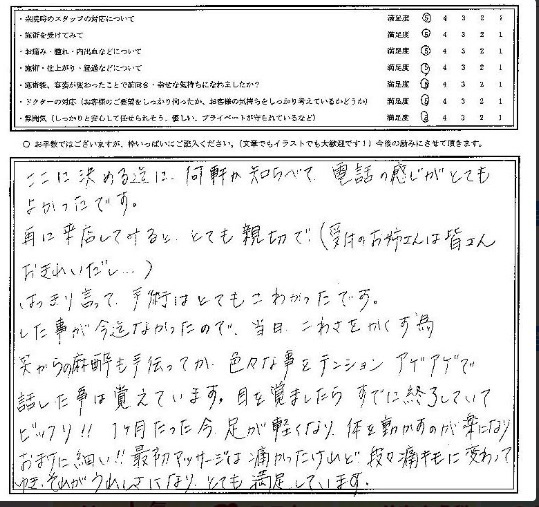 ・来院時のスタッフの対応について 満足度 ⑤ 4 3 2 1
・施術を受けてみて 満足度 ⑤ 4 3 2 1
・お痛み・腫れ・内出血などについて 満足度 ⑤ 4 3 2 1
・施術・仕上がり・経過などについて 満足度 ⑤ 4 3 2 1
・施術後、容姿が変わったことで前向き・幸せな気持ちになれましたか? 満足度 ⑤ 4 3 2 1
・ドクターの対応(お客様のご要望をしっかり伺ったか、お客様の気持ちをしっかり考えているかどうか) 満足度 ⑤ 4 3 2 1
・雰囲気(しっかりと安心して任せられそう、優しい、プライベートが守られているなど) 満足度 ⑤ 4 3 2 1
○ お手数ではございますが、枠いっぱいにご記入ください。(文章でもイラストでも大歓迎です!)今後の励みにさせて頂きます。
ここに決める迄に、何軒か知らべて、電話の感じがとても
よかったです。
再に来店してみると、とても親切で、(受付のお姉さんは皆さん
おきれいだし…)
はっきり言って、手術はとてもこわかったです。
した事が今迄なかったので、当日、こわさをかくす為
天からの麻酔も手伝ってか、色々な事をテンション アゲアゲで
話した事は覚えています。目を覚ましたら すでに終了していて
ビックリ!! 1ヶ月たった今、足が軽くなり、体を動かすのが楽になり
おまけに細い!!最初マッサージは痛かったけれど段々痛キモに変わって
ゆき、それがうれしさになり、とても満足しています。